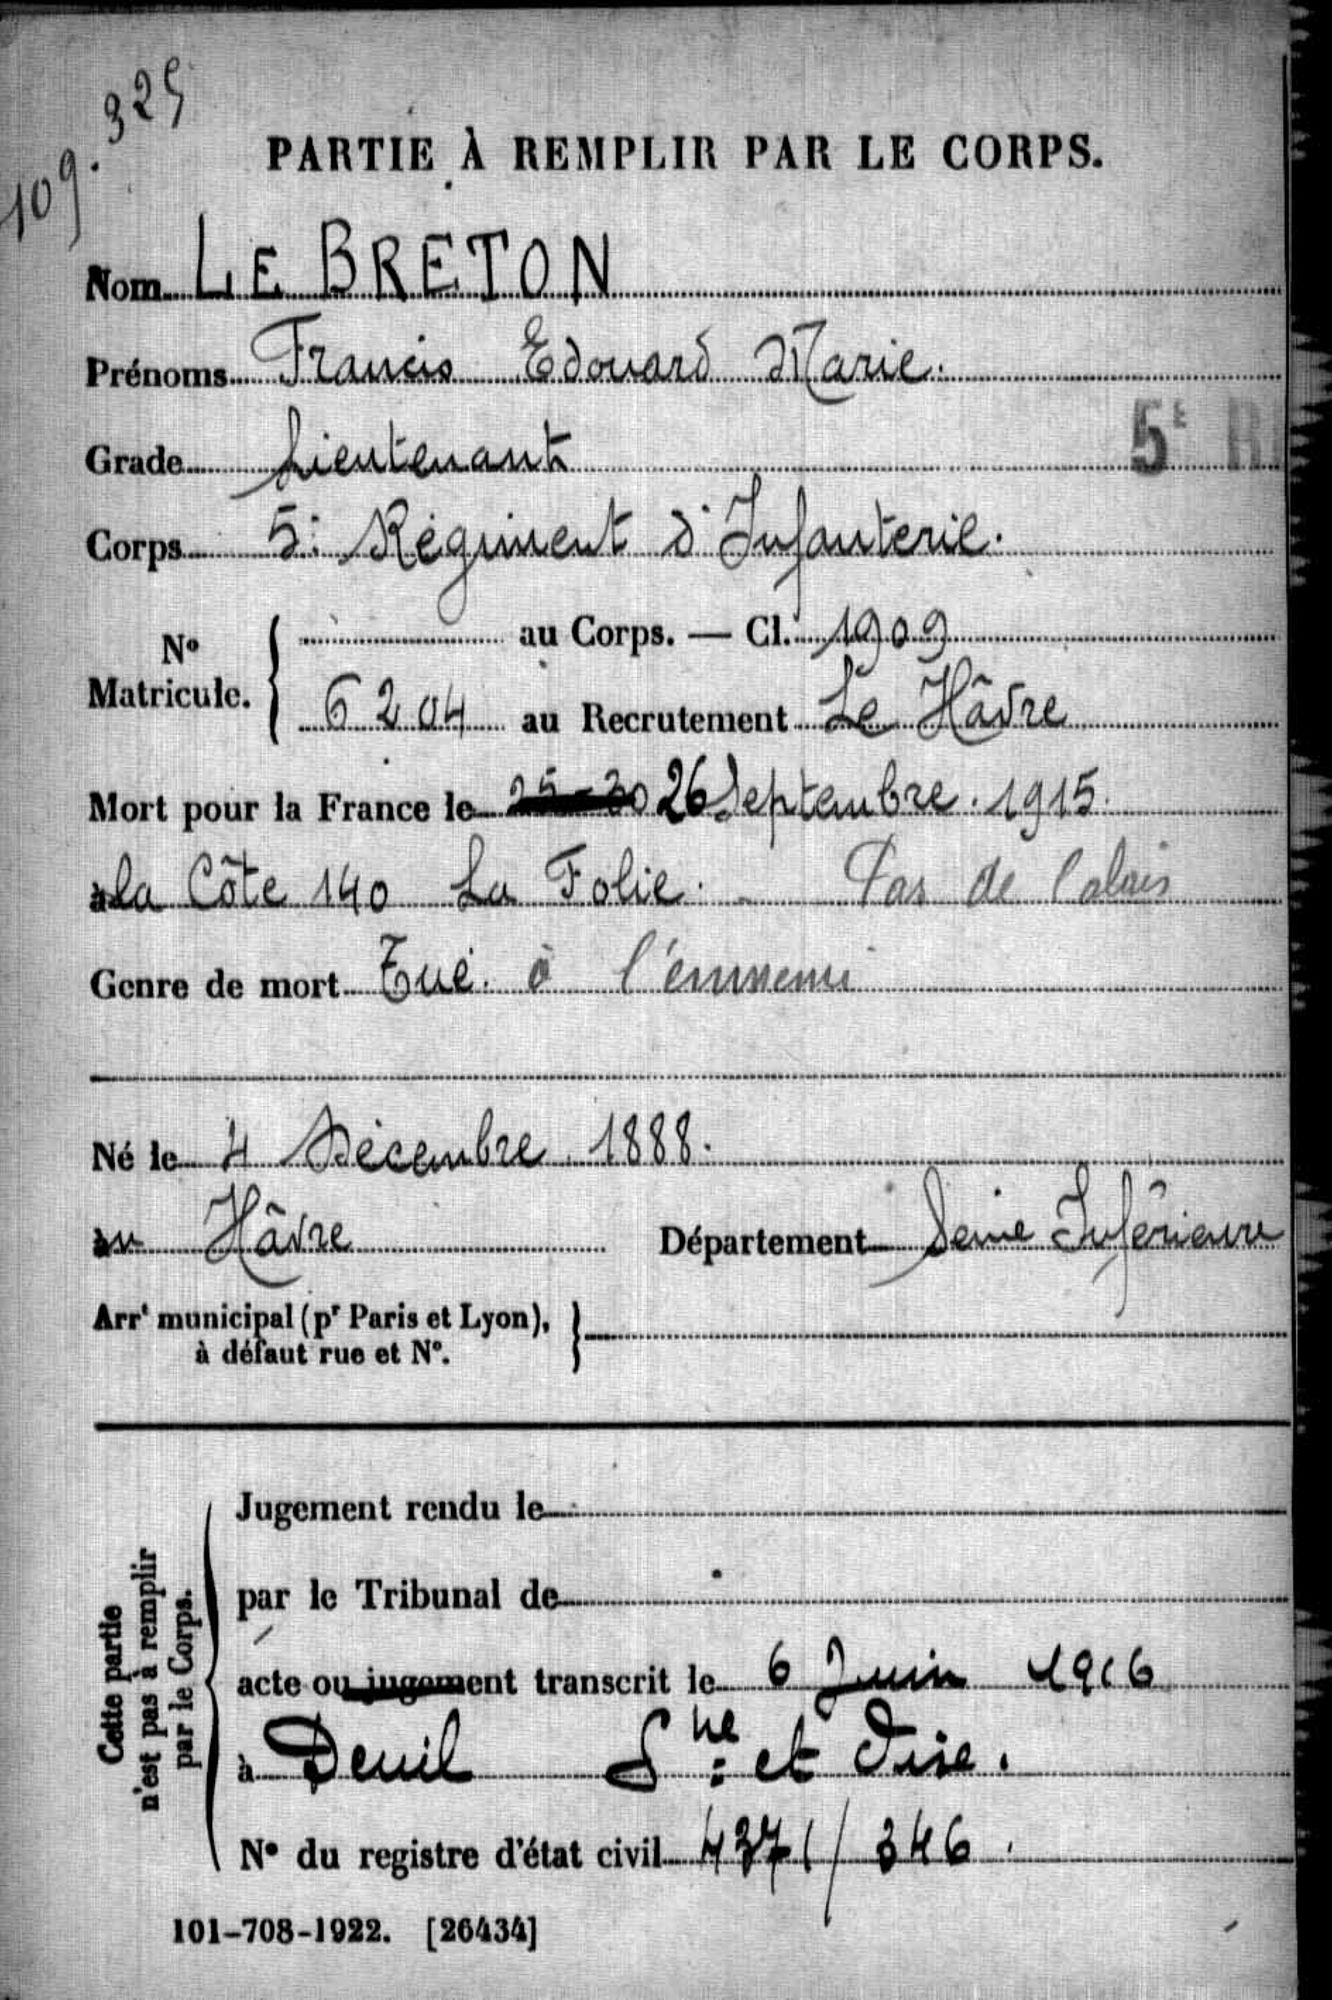 109.325
PARTIE À REMPLIR PAR LE CORPS.
Nom LE BRETON
Prénoms Francis Edouard Marie.
Grade Lieutenant
5E
Corps 5e Régiment d'Infanterie.
No Matricule. au Corps. — Cl. 1909
6204 au Recrutement Le Hâvre
Mort pour la France le 25-30 26 Septembre. 1915.
à la Côte 140 La Folie. - Pas de Calais
Genre de mort Tué. à l'ennemi
Né le 4 Décembre 1888.
au Hâvre Département Seine Inférieure
Arrt municipal (pr Paris et Lyon),
à défaut rue et No.
Cette partie
n'est pas à remplir
par le Corps.
Jugement rendu le
par le Tribunal de
acte ou jugement transcrit le 6 Juin 1916
à Deuil Sne et Oise.
No du registre d'état civil 4371/346.
101-708-1922. [26434]